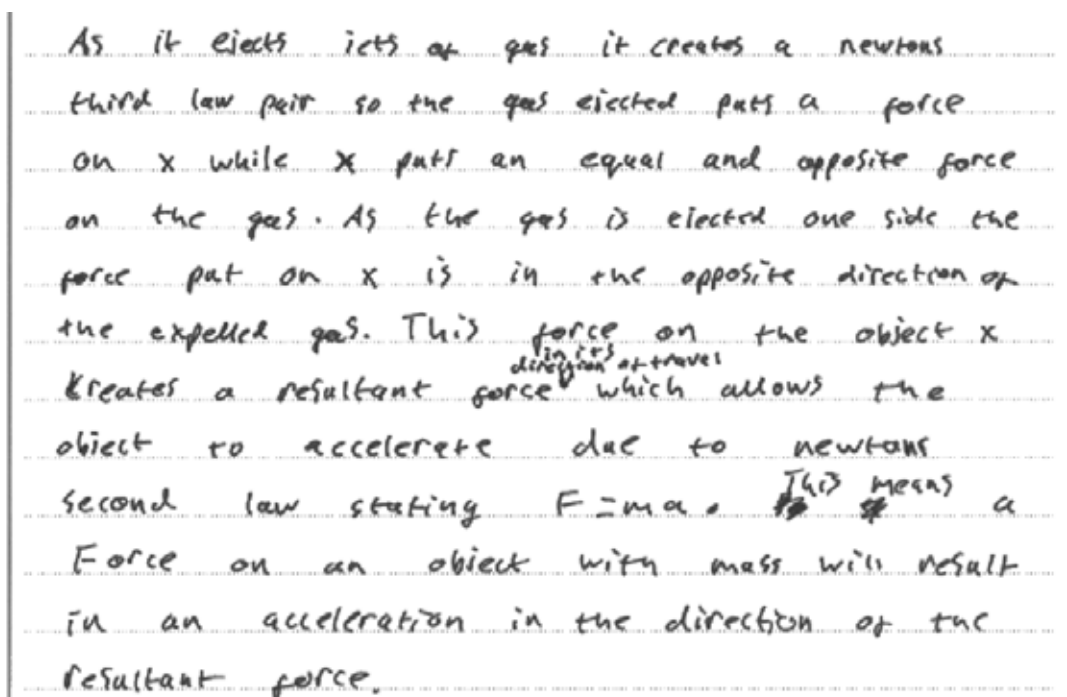 As it ejects jets of gas it creates a newtons
third law pair so the gas ejected puts a force
on x while x puts an equal and opposite force
on the gas. As the gas is ejected one side the
force put on x is in the opposite direction of
the expelled gas. This force on the object x
in its
direction of travel
creates a resultant force which allows the
object to accelerate due to newtons
second law stating F=ma. This means a
Force on an object with mass will result
in an acceleration in the direction of the
resultant force.